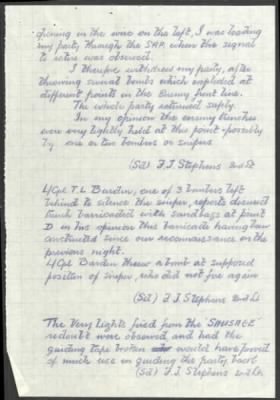 opening in the wire on the left, I was leading
my party through the GAP. when the signal
to retire was observed.
I therefore withdrew my party, after
throwing several bombs which exploded at
different points in the Enemy front line.
The whole party returned safely.
In my opinion the enemy trenches
were very lightly held at this point possibly
by one or two bombers or snipers
(Sd) F.J. Stephens 2nd Lt
L/Cpl T.L. Burdin, one of 3 bombers left
behind to silence the sniper, reports disused
trench barricaded with sandbags at point
D in his opinion this barricade having been
constructed since our reconnaissance on the
previous night.
L/Cpl Burdin threw a bomb at supposed
position of sniper, who did not fire again
(Sd) F.J. Stephens 2nd Lt
The Very Lights fired from the "SAUSAGE"
redoubt were observed and had the
guiding tape broken would have proved
of much use in guiding the party back
(Sd) F.J. Stephens 2nd Lt